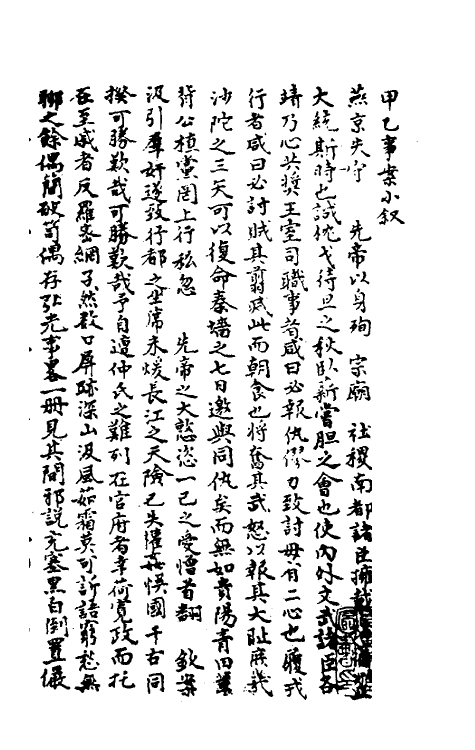 甲乙事案小叙
燕京失守　先帝以身殉　宗廟　社稷南都諸臣擁戴
大統斯時也誠枕戈待旦之秋臥薪嘗胆之會也使內外文武諸臣各
靖乃心共獎王室司職事者咸曰必報仇僇力致討毋有二心也履戎
行者咸曰必討賊其翦滅此而朝食也將奮其武怒以報其大恥庶幾
沙陀之三矢可以復命秦墻之七日邀與同仇矣而無如貴陽青田輩
背公植黨罔上行私忽　先帝之大憝恣一己之愛憎首翻　欽案
汲引羣奸遂致行都之坐席未煖長江之天險已失權奸悮國千古同
揆可勝歎哉可勝歎哉予自遭仲氏之難列在官府者幸荷寬政而托
在至戚者反羅密網孑然數口屏跡深山汲風茹霜莫可訴語窮愁無
聊之餘偶簡破笥偶存弘光事畧一冊見其間邪說充塞黑白倒置儼